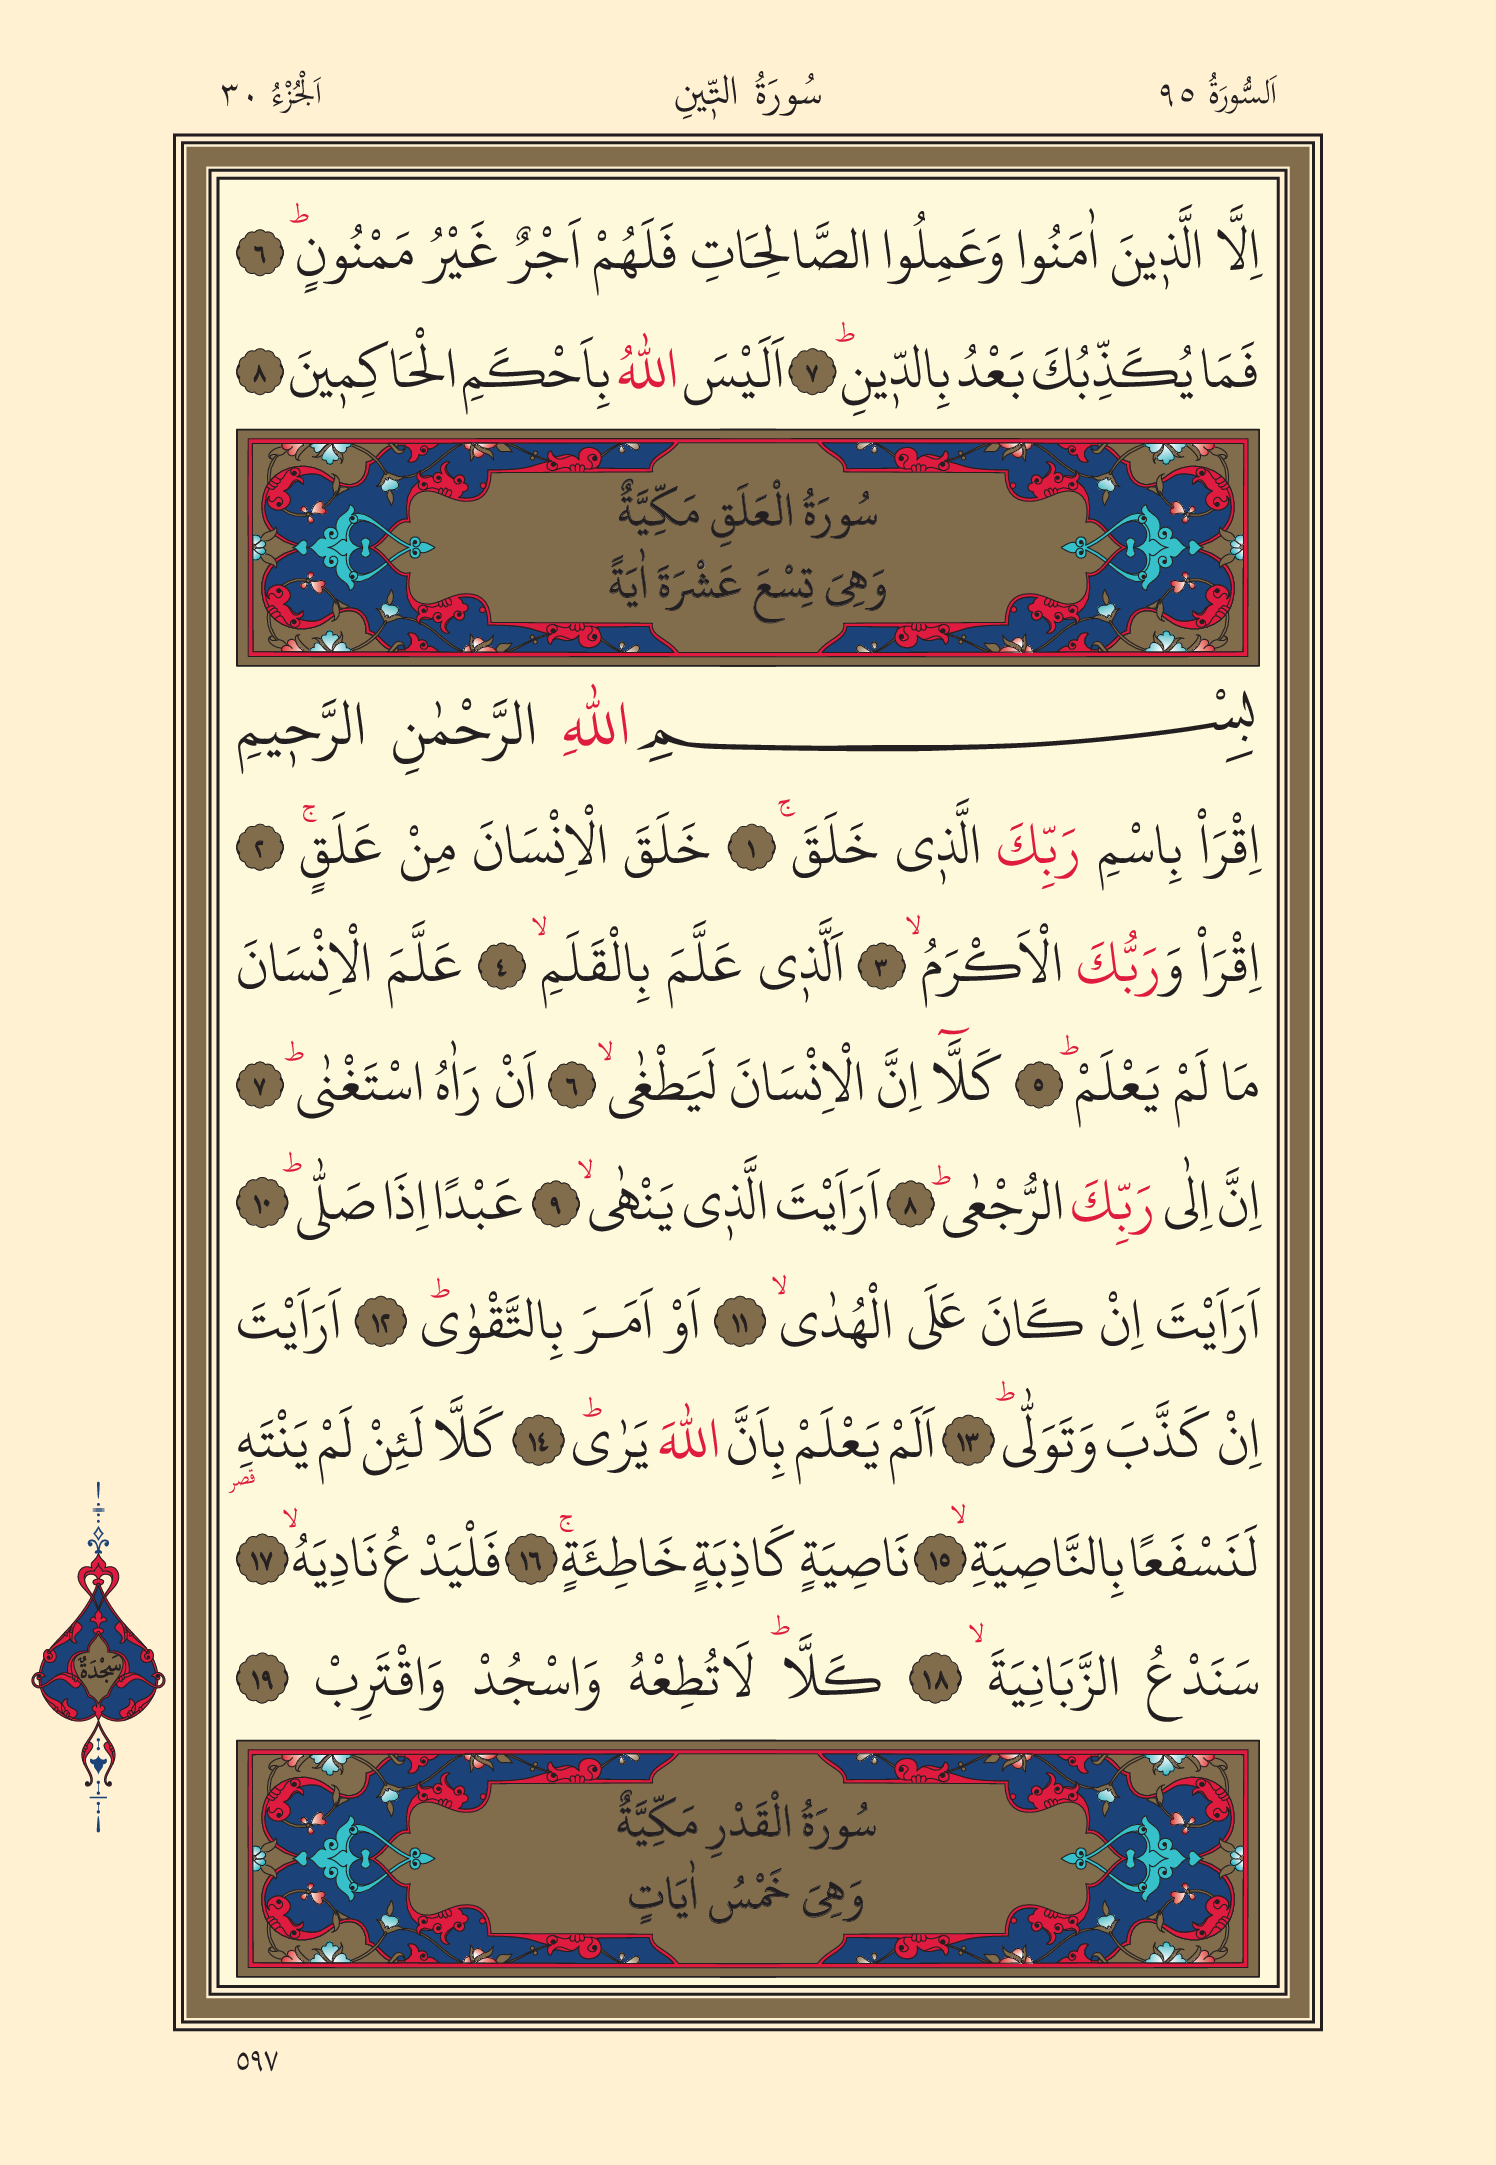 اَلسُّورَةُ ٩٥ سُورَةُ التّ۪ينِ اَلْجُزْءُ ٣٠
اِلَّا الَّذ۪ينَ اٰمَنُوا وَعَمِلُوا الصَّالِحَاتِ فَلَهُمْ اَجْرٌ غَيْرُ مَمْنُونٍۜ ٦
فَمَا يُكَذِّبُكَ بَعْدُ بِالدّ۪ينِۜ ٧ اَلَيْسَ اللّٰهُ بِاَحْكَمِ الْحَاكِم۪ينَ ٨
سُورَةُ الْعَلَقِ مَكِّيَّةٌ
وَهِيَ تِسْعَ عَشْرَةَ اٰيَةً
بِسْمِ اللّٰهِ الرَّحْمٰنِ الرَّح۪يمِ
اِقْرَاْ بِاسْمِ رَبِّكَ الَّذ۪ى خَلَقَۚ ١ خَلَقَ الْاِنْسَانَ مِنْ عَلَقٍۚ ٢
اِقْرَاْ وَرَبُّكَ الْاَكْرَمُۙ ٣ اَلَّذ۪ى عَلَّمَ بِالْقَلَمِۙ ٤ عَلَّمَ الْاِنْسَانَ
مَا لَمْ يَعْلَمْۜ ٥ كَلَّٓا اِنَّ الْاِنْسَانَ لَيَطْغٰىۙ ٦ اَنْ رَاٰهُ اسْتَغْنٰىۜ ٧
اِنَّ اِلٰى رَبِّكَ الرُّجْعٰىۜ ٨ اَرَاَيْتَ الَّذ۪ى يَنْهٰىۙ ٩ عَبْدًا اِذَا صَلّٰىۜ ١٠
اَرَاَيْتَ اِنْ كَانَ عَلَى الْهُدٰىۙ ١١ اَوْ اَمَرَ بِالتَّقْوٰىۜ ١٢ اَرَاَيْتَ
اِنْ كَذَّبَ وَتَوَلّٰىۜ ١٣ اَلَمْ يَعْلَمْ بِاَنَّ اللّٰهَ يَرٰىۜ ١٤ كَلَّا لَئِنْ لَمْ يَنْتَهِ
قصر
لَنَسْفَعًا بِالنَّاصِيَةِۙ ١٥ نَاصِيَةٍ كَاذِبَةٍ خَاطِئَةٍۚ ١٦ فَلْيَدْعُ نَادِيَهُۙ ١٧
سَنَدْعُ الزَّبَانِيَةَۙ ١٨ كَلَّاۜ لَا تُطِعْهُ وَاسْجُدْ وَاقْتَرِبْ ١٩
سَجْدَةٌ
سُورَةُ الْقَدْرِ مَكِّيَّةٌ
وَهِيَ خَمْسُ اٰيَاتٍ
٥٩٧